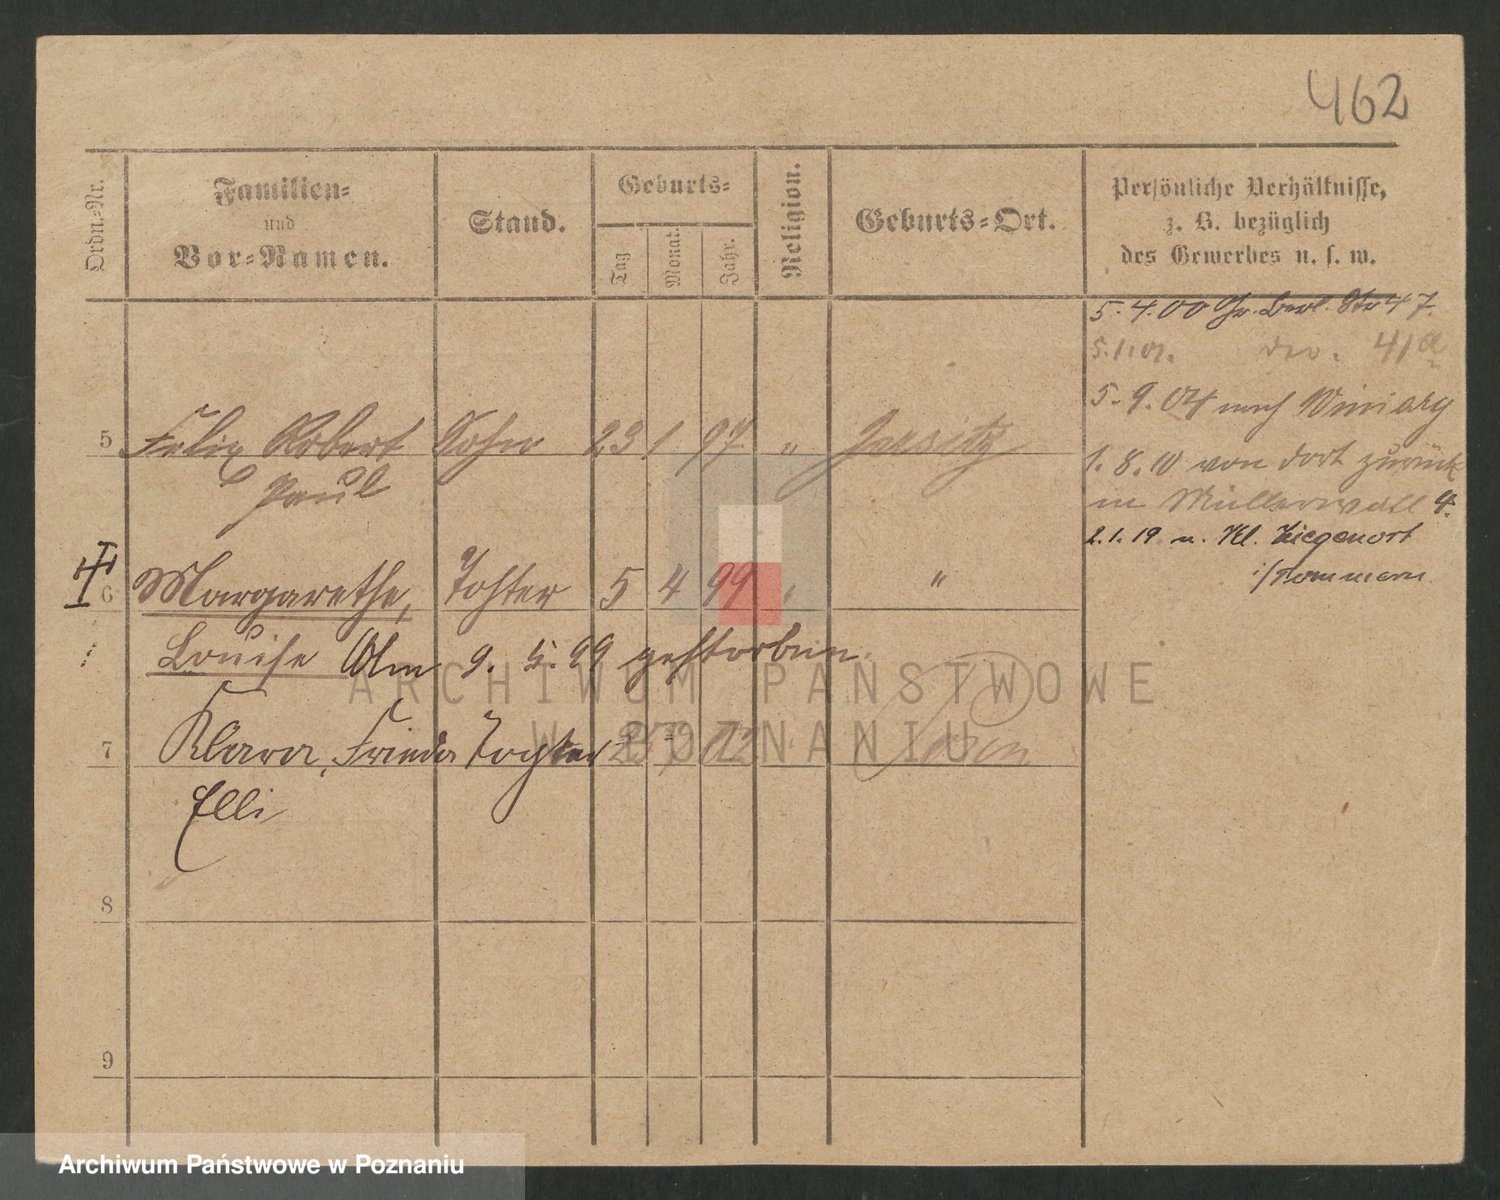 462
Ordn.-Nr.
Familien-
und
Vor-Namen.
Stand.
Geburts-
Tag
Monat.
Jahr.
Religion.
Geburts-Ort.
Persönliche Verhältnisse,
z. B. bezüglich
des Gewerbes u. s. w.
5. 4. 00 Gr. Berl. Str 47.
5. 1. 01. do. 41a
5. 9. 04 nach Winiary
5 Felix Robert Sohn 23 1 97 " Jersitz
Paul
1. 8. 10 von dort zurück
in Müllerwall 4.
2. 1. 19 n. Kl. Ziegenort
i/Pommern
6 Margarethe, Tohter 5 4 99 " "
Louise Am 9. 5. 99 gestorben.
7 Klara, Frieda Tochter Posen
Elli
8
9
ARCHIWUM PAŃSTWOWE
W POZNANIU
Archiwum Państwowe w Poznaniu